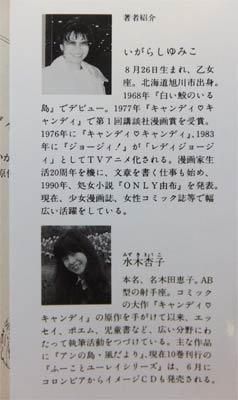 著者紹介
いがらしゆみこ
8月26日生まれ、乙女
座。北海道旭川市出身。
1968年『白い鮫のいる
島』でデビュー。1977年『キャンディ♡キ
ャンディ』で第1回講談社漫画賞を受賞。
1976年に『キャンディ♡キャンディ』、1983
年に『ジョージィ!』が「レディジョージ
ィ」としてTVアニメ化される。漫画家生
活20周年を機に、文章を書く仕事も始め、
1990年、処女小説『ONLY由布』を発表。
現在、少女漫画誌、女性コミック誌等で幅
広い活躍をしている。
みずききょうこ
水木杏子
本名、名木田恵子。AB
型の射手座。コミック
の大作『キャンディ♡
キャンディ』の原作を手がけて以来、エッ
セイ、ポエム、児童書など、広い分野にわ
たって執筆活動をつづけている。主な作品
に『アンの島・風だより』、現在10巻刊行の
『ふーことユーレイシリーズ』は、6月に
コロンビアからイメージCDも発売される。